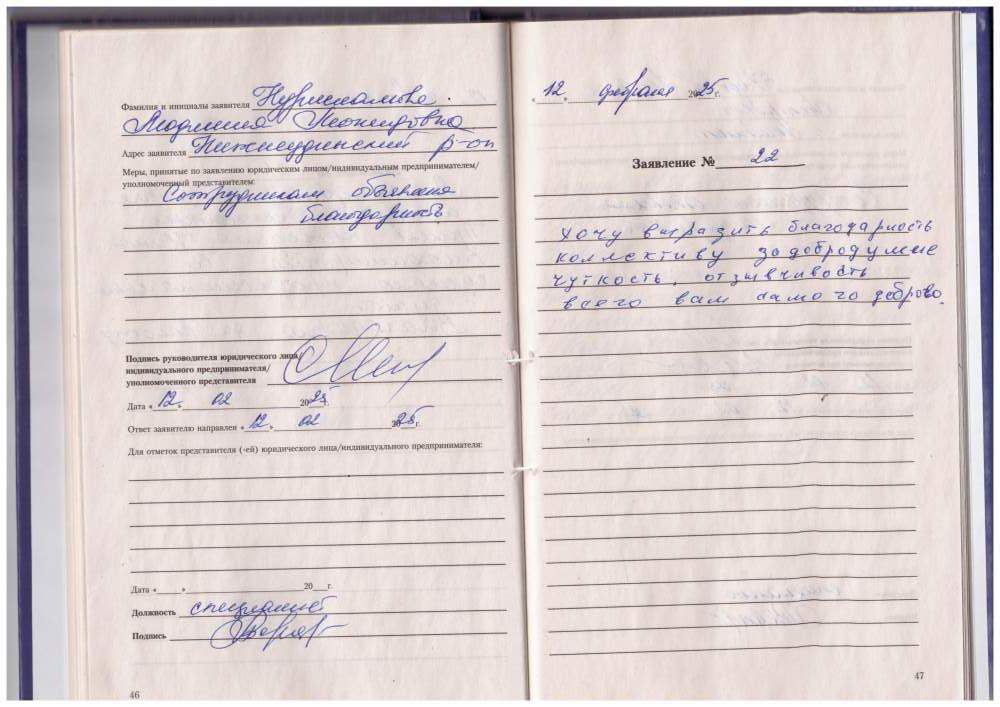 Фамилия и инициалы заявителя Нурисламова
Людмила Леонидовна
Адрес заявителя Нижнеудинский р-он
Меры, принятые по заявлению юридическим лицом/индивидуальным предпринимателем/
уполномоченный представителем:
Сотрудникам объявлена
благодарность
Подпись руководителя юридического лица/
индивидуального предпринимателя/
уполномоченного представителя
Дата «12» 02 2025г.
Ответ заявителю направлен «12» 02 2025г.
Для отметок представителя (-ей) юридического лица/индивидуального предпринимателя:
Дата «____» ____ 20__ г.
Должность специалист
Подпись
46
«12» февраля 2025г.
Заявление № 22
Хочу выразить благодарность
коллективу за добродушие
чуткость, отзывчивость
всего вам самого доброво.
47